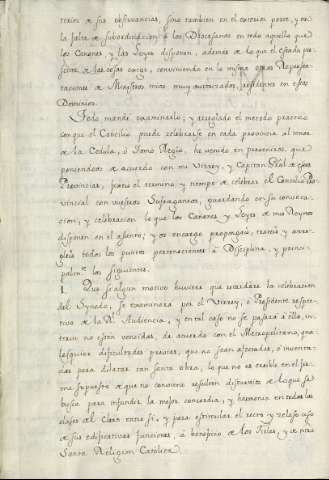 terior de sus observancias, sino tambien en el exterior porte, y en
la falta de subordinacion à los Diocesanos en todo aquello que
los Canones, y las Leyes disponen, ademas de lo que el estado pre-
de las cosas exige, conviniendo en lo mismo otras Representa-
ciones de Ministros mios muy autorizados, residentes en esos
Dominios.
Todo mandé examinarlo; y arreglado el metodo practico
con que el Concilio puede celebrarse en cada provincia al tenor
de la Cedula, ò Tomo Regio, he venido en preveniros, que
poniendoos de acuerdo con mi Virrey, y Capitan Gral de esas
Provincias, fixeis el termino y tiempo de celebrar el Concilio Pro-
vincial con vuestros Sufraganeos, guardando en su convoca-
cion, y celebracion lo que los Canones, y Leyes de mis Reynos
disponen en el asunto; y os encargo propongais, trateis y arre-
gleis todos los puntos pertenecientes à Disciplina, y princi-
palm.te los siguientes.
I. Que si algun motivo huviere que retardare la celebracion
del Synodo, se examinará por el Virrey, ò Presidente respec-
tivo de la Rl Audiencia, y en tal caso no se pasará à ello, in-
terin no estén vencidas, de acuerdo con el Metropolitano, qua-
lesquiera dificultades previas, que no sean afectadas, ó inventa-
das para dilatar tan santa obra, lo que no es creible en el fir-
me supuesto de que no conviene resulten disturbios de lo que se
busca para infundir la mejor concordia, y harmonia en todas las
clases del Clero entre sí, y para estimular el recto y zeloso uso
de sus respectivas funciones, à beneficio de los Fieles, y de nra
Santa Religion Catolica.